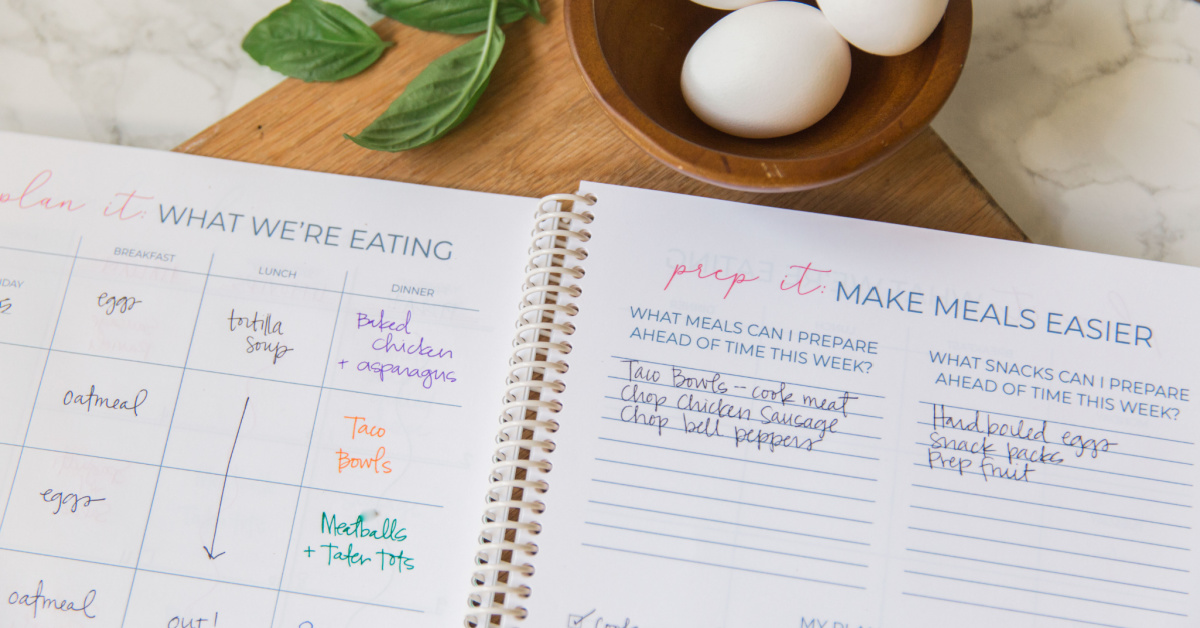 plan it: WHAT WE'RE EATING
BREAKFAST
LUNCH
DINNER
eggs
tortilla
soup
Baked
chicken
+ asparagus
oatmeal
Taco
Bowls
eggs
Meatballs
+ Tater Tots
oatmeal
out!
prep it: MAKE MEALS EASIER
WHAT MEALS CAN I PREPARE
AHEAD OF TIME THIS WEEK?
Taco Bowls – cook meat
Chop Chicken Sausage
Chop bell peppers
WHAT SNACKS CAN I PREPARE
AHEAD OF TIME THIS WEEK?
Hard boiled eggs
Snack packs
Prep fruit